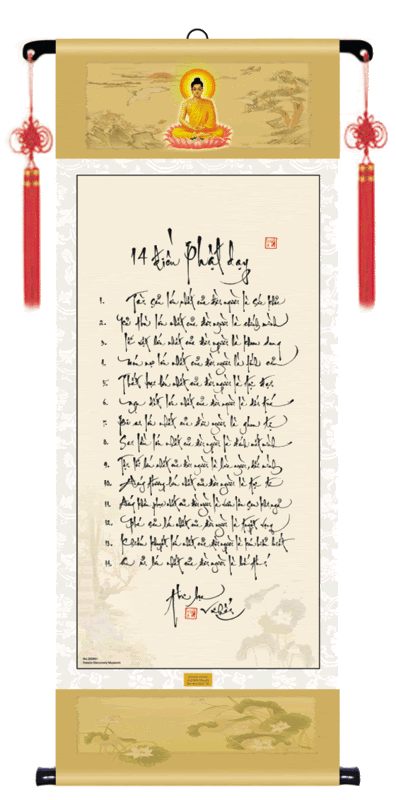 14 điều Phật dạy
1. Tài sản lớn nhất của đời người là sức khỏe
2. Kẻ thù lớn nhất của đời người là chính mình
3. Lễ vật lớn nhất của đời người là khoan dung
4. Món nợ lớn nhất của đời người là tình cảm
5. Thất bại lớn nhất của đời người là tự đại
6. Ngu dốt lớn nhất của đời người là dối trá
7. Bi ai lớn nhất của đời người là ghen tỵ
8. Sai lầm lớn nhất của đời người là đánh mất mình
9. Tội lỗi lớn nhất của đời người là lừa người, dối mình
10. Đáng thương lớn nhất của đời người là tự ti
11. Đáng khâm phục nhất của đời người là vươn lên sau khi ngã
12. Phá sản lớn nhất của đời người là tuyệt vọng
13. Khiếm khuyết lớn nhất của đời người là kém hiểu biết
14. An ủi lớn nhất của đời người là bố thí